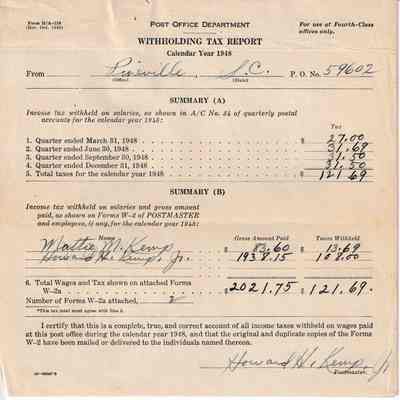 POST OFFICE DEPARTMENT
For use at Fourth-Class offices only.
WITHHOLDING TAX REPORT
Calendar Year 1948
From Pineville, S.C. P. O. No. 59602
(Office) (State)
SUMMARY (A)
Income tax withheld on salaries, as shown in A/C No. 34 of quarterly postal
accounts for the calendar year 1948:
Tax
1. Quarter ended March 31, 1948 $ 27.00
2. Quarter ended June 30, 1948 31.69
3. Quarter ended September 30, 1948 31.50
4. Quarter ended December 31, 1948 31.50
5. Total taxes for the calendar year 1948 $ 121.69
SUMMARY (B)
Income tax withheld on salaries and gross amount
paid, as shown on Forms W-2 of POSTMASTER
and employees, if any, for the calendar year 1948:
Name Gross Amount Paid Taxes Withheld
Mattie M. Kemp $ 83.60 $ 13.69
Howard H. Kemp, Jr. 1938.15 108.00
6. Total Wages and Tax shown on attached Forms
W-2a $ 2021.75 $ *121.69.
Number of Forms W-2a attached, 2
*This tax total must agree with line 5.
I certify that this is a complete, true, and correct account of all income taxes withheld on wages paid
at this post office during the calendar year 1948, and that the original and duplicate copies of the Forms
W-2 have been mailed or delivered to the individuals named thereon.
Howard H. Kemp, Jr
Postmaster.